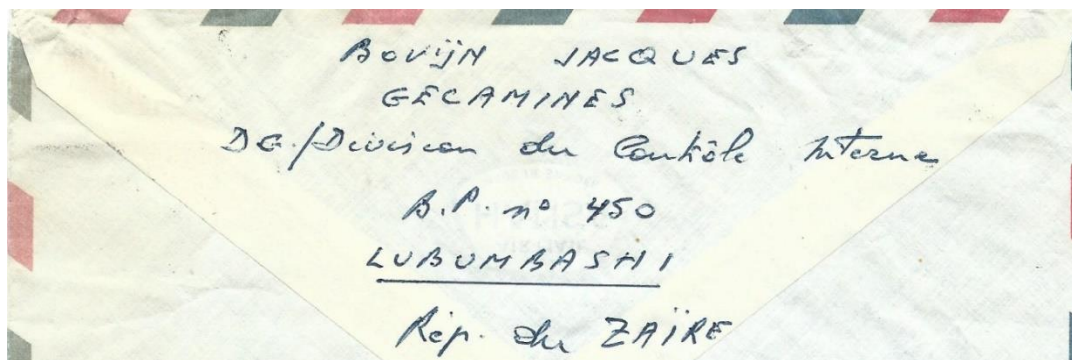 BOVIJN JACQUES
GECAMINES
DG./Division du Contrôle Interne
B.P. nº 450
LUBUMBASHI
Rép. du ZAÏRE